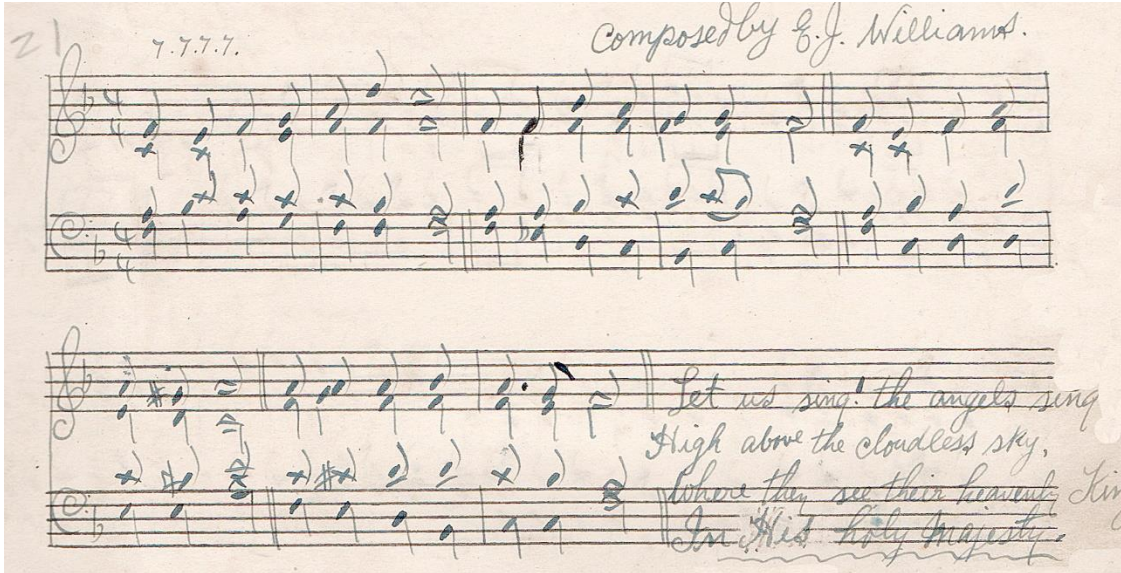 21
7.7.7.7. Composed by E.J. Williams.
4
4
4
4
Let us sing! the angels sing
High above the cloudless sky,
Where they see their heavenly Kin
In His holy Majesty.